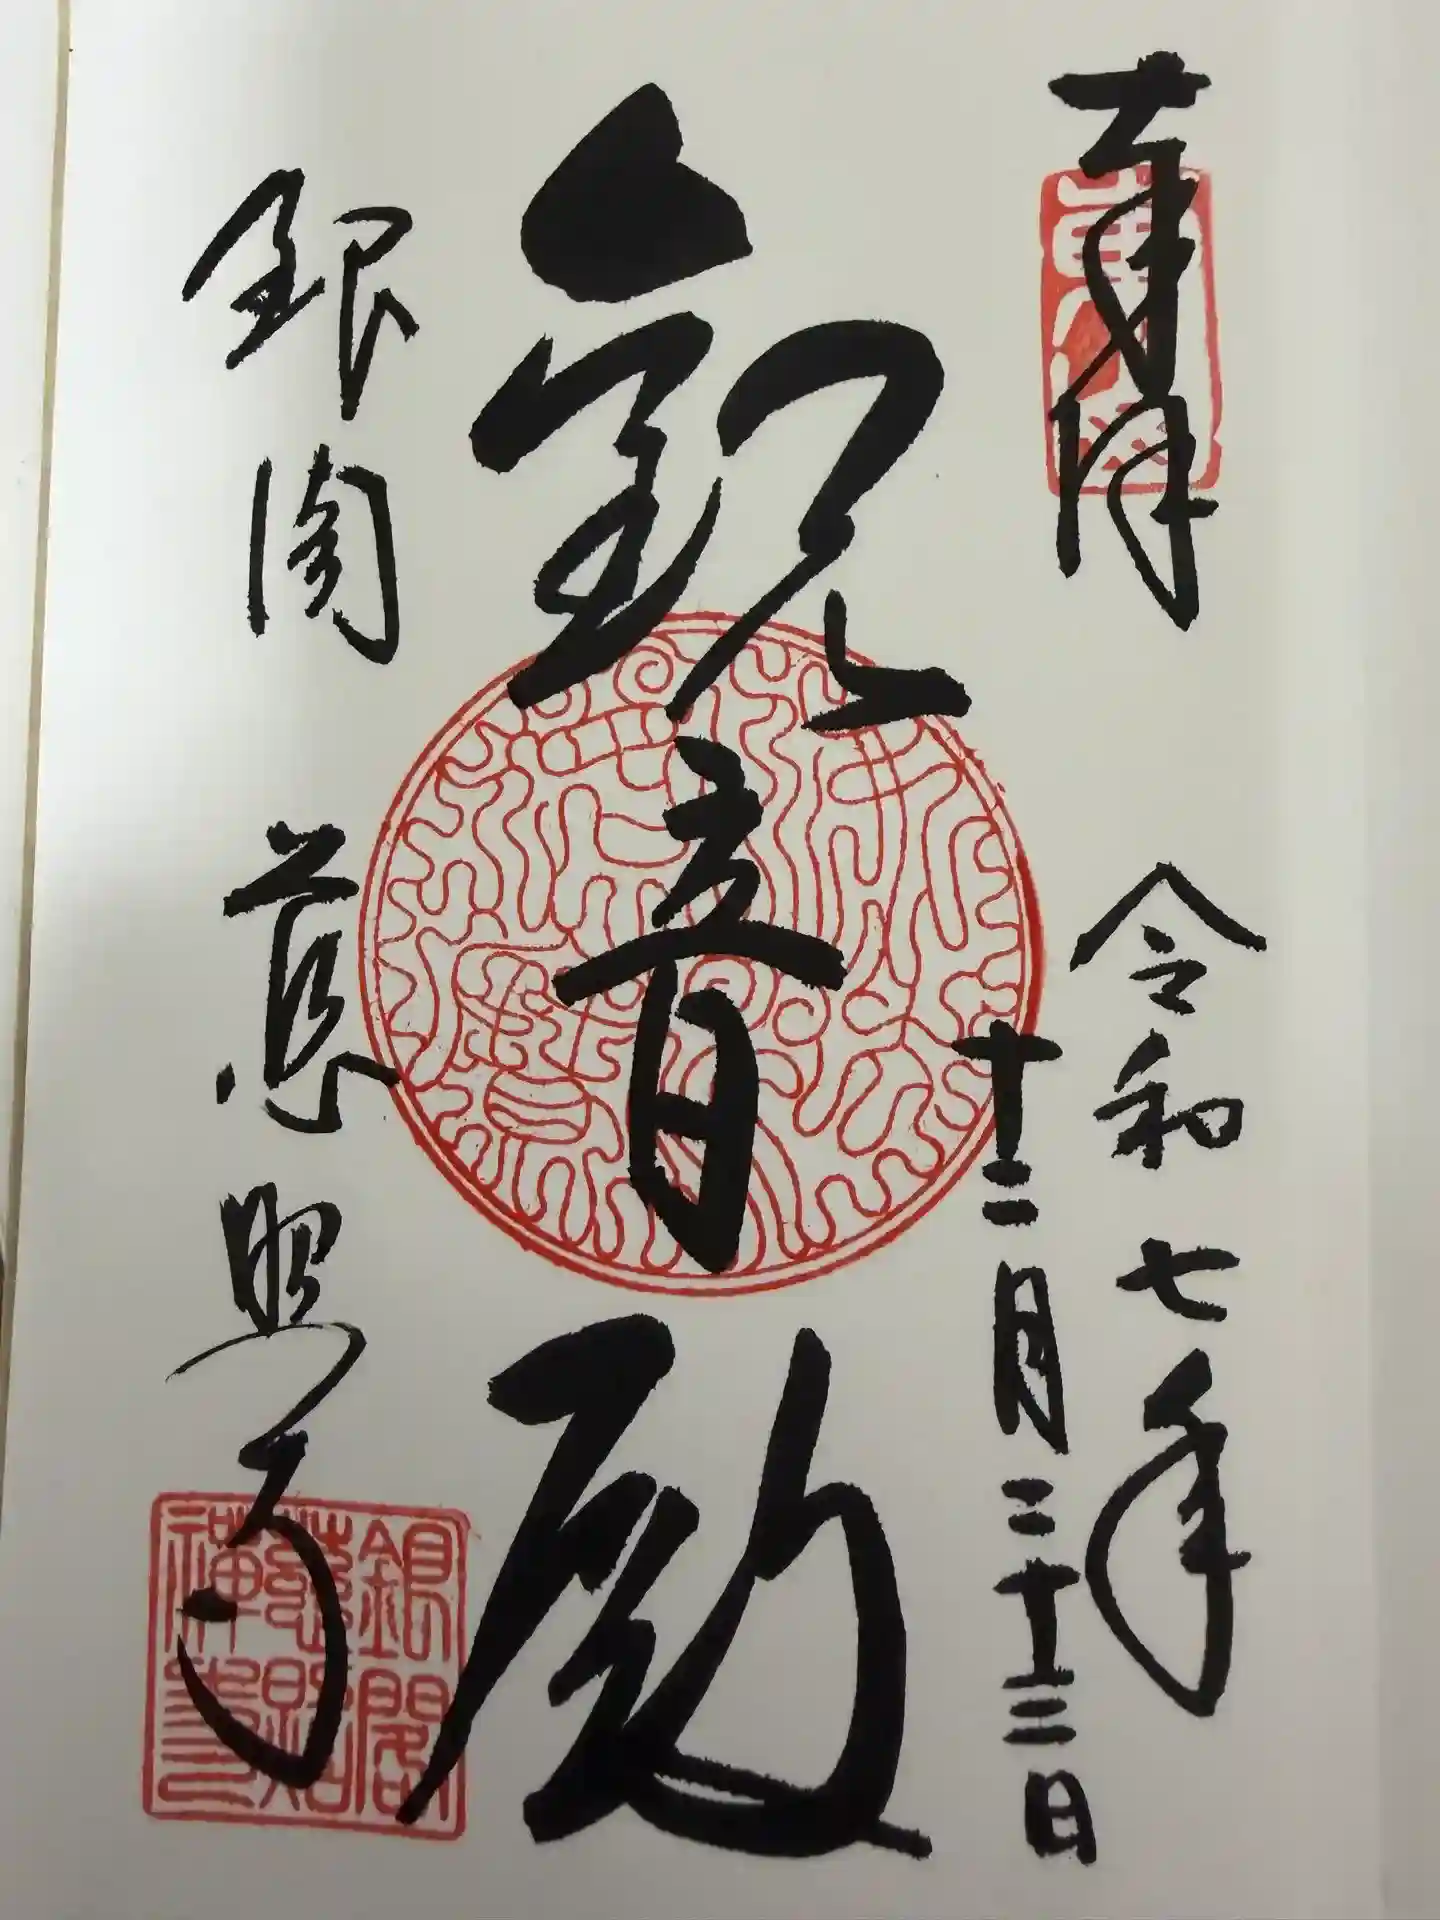 奉拝
令和七年
十二月二十三日
観音殿
銀閣
慈照寺
銀閣
慈照
禅寺